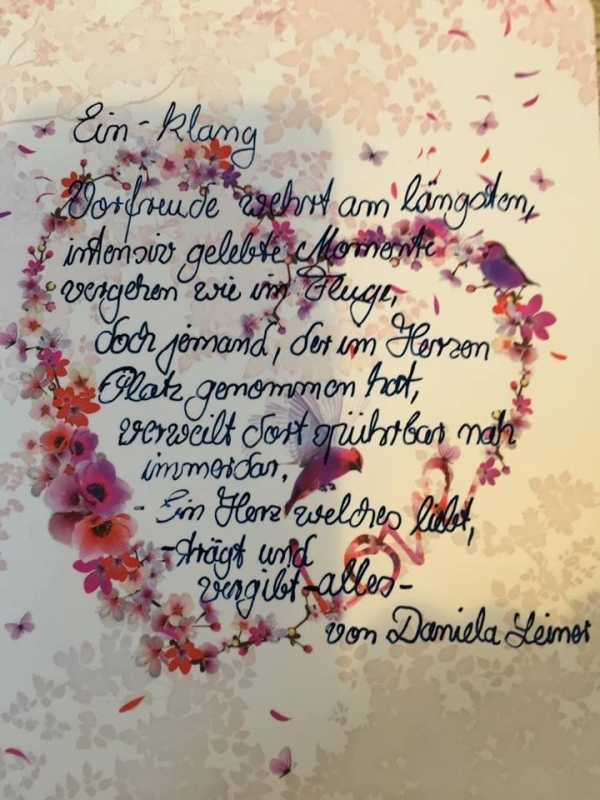 Ein-klang
Vorfreude wehrt am längsten,
intensiv gelebte Momente
vergehen wie im Fluge,
doch jemand, der im Herzen
Platz genommen hat,
verweilt dort spührbar nah
immerdar,
- Ein Herz welches liebt,
- trägt und
vergibt -alles-
von Daniela Leiner